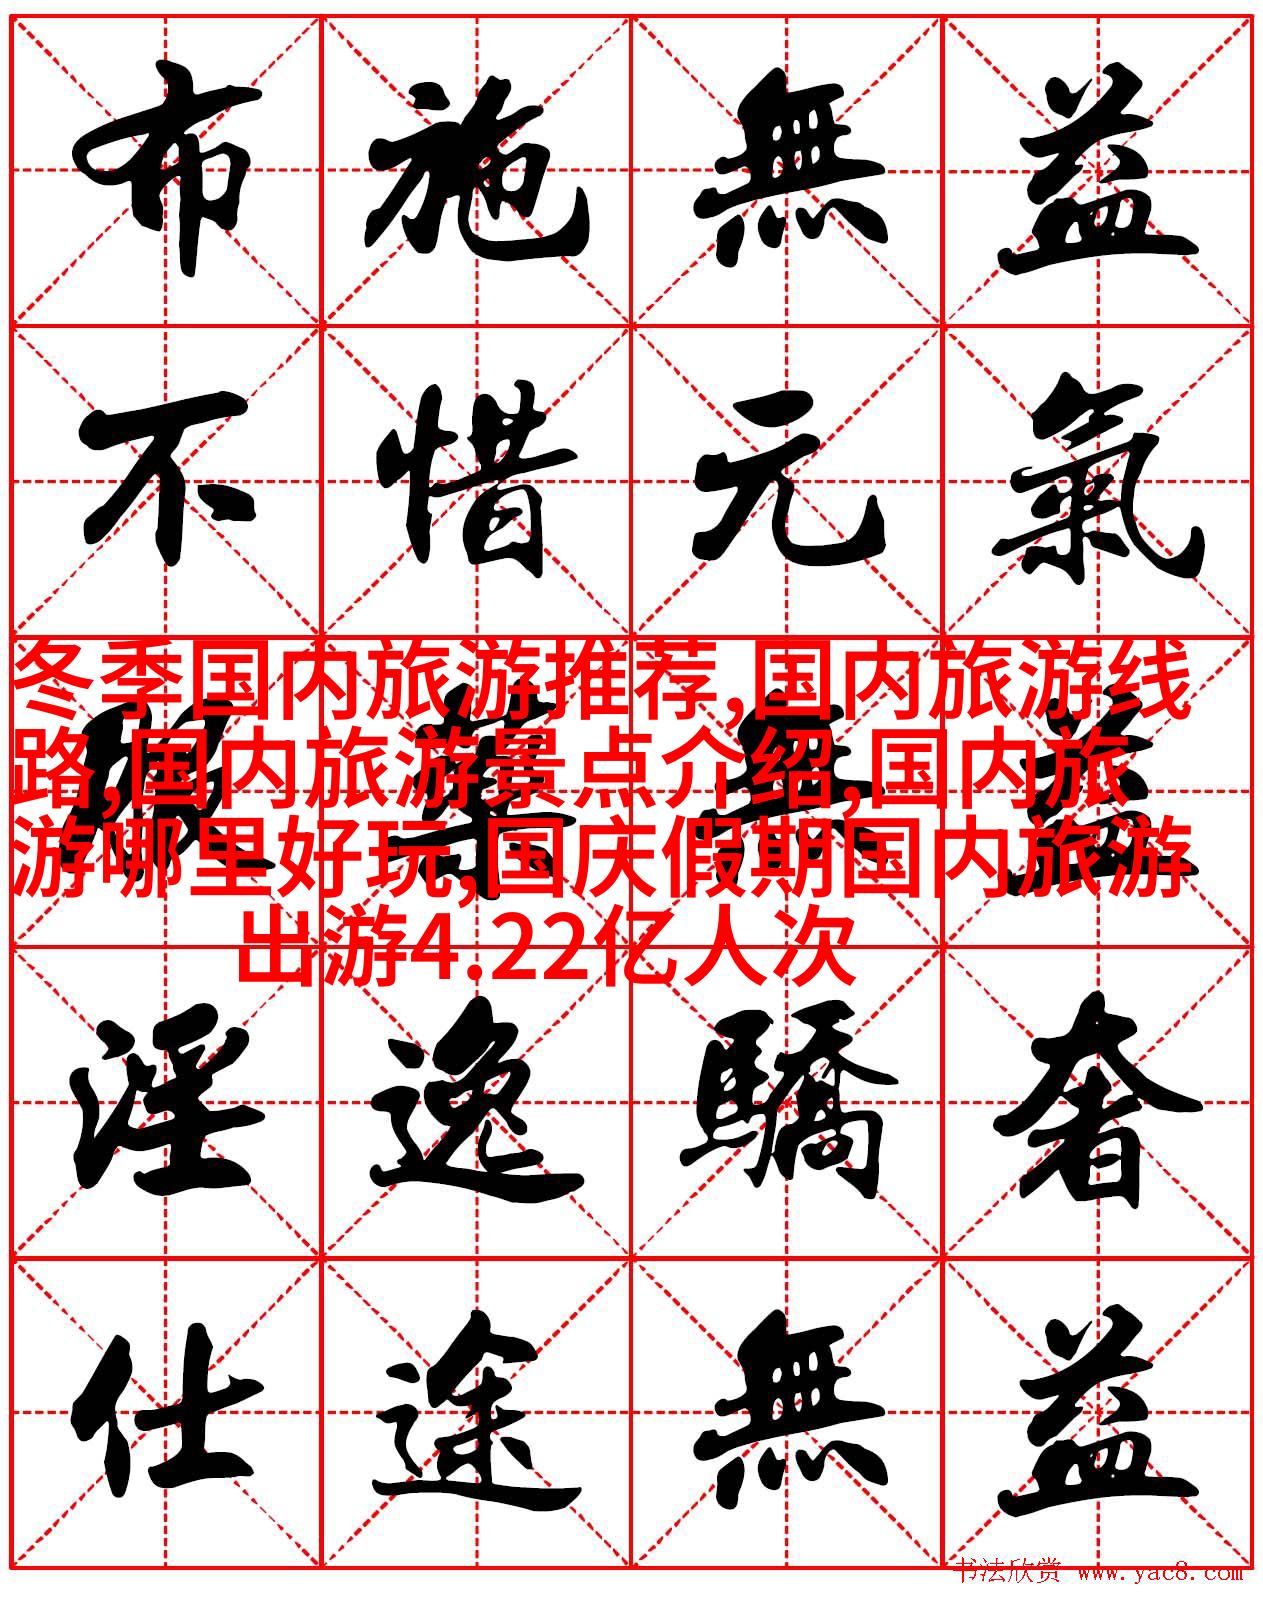 布施無益
不惜元氣
冬季国内旅游推荐,国内旅游线
路,国内旅游景点介绍,国内旅
游哪里好玩,国庆假期国内旅游
出游4.22亿人次
服藥無益
淫逸驕奢
仕途無益
书法欣赏 www.yac8.com